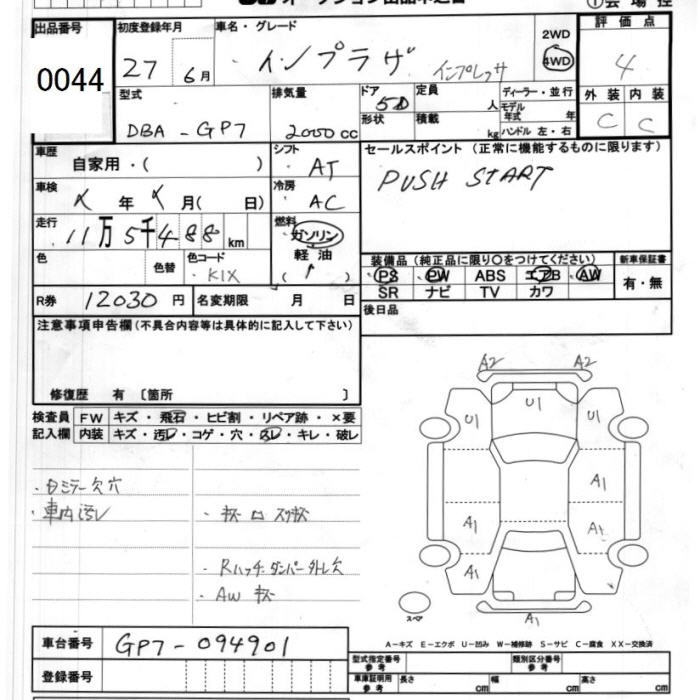 オークション出品申込書
①会場控
出品番号
0044
初度登録年月
27
6月
車名・グレード
インプラザ
インプレッサ
2WD
4WD
評価点
4
外装 内装
C C
型式
DBA-GP7
排気量
2000 cc
ドア
5D
形状
定員
人
積載
kg
ディーラー・並行
モデル
年式 年
ハンドル 左・右
車歴
自家用・( )
シフト
AT
セールスポイント (正常に機能するものに限ります)
PUSH START
車検
年 月( 日)
冷房
AC
走行
11万5千488 km
燃料
ガソリン
軽油
( )
色
色替
色コード
K1X
装備品 (純正品に限り〇をつけてください)
PS PW ABS エアB AW
SR ナビ TV カワ
新車保証書
有・無
R券 12030円
名変期限 月 日
後日品
注意事項申告欄(不具合内容等は具体的に記入して下さい)
修復歴 有 〔箇所 〕
検査員
記入欄
FW キズ・飛石・ヒビ割・リペア跡・×要
内装 キズ・汚レ・コゲ・穴・凹レ・キレ・破レ
・車内汚レ
・キズ ロ スリキズ
・Rハッチダンパー外レ欠
・AW キズ
A2 A2
U1 U1 U1
A1
A1 A1
A1
スペア
A－キズ E－エクボ U－凹み W－補修跡 S－サビ C－腐食 XX－交換済
車台番号 GP7-094901
登録番号
型式指定番号
参考
類別区分番号
参考
車庫証明用
参考
長さ cm 幅 cm 高さ cm